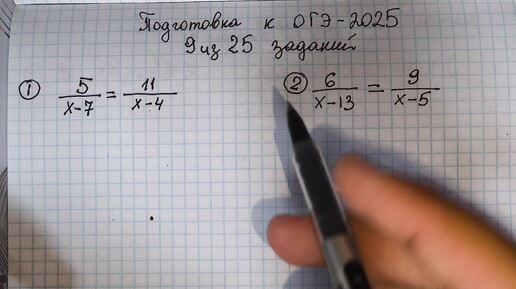 Подготовка к ОГЭ-2025
9 из 25 заданий
① 5/(x-7) = 11/(x-4)
② 6/(x-13) = 9/(x-5)